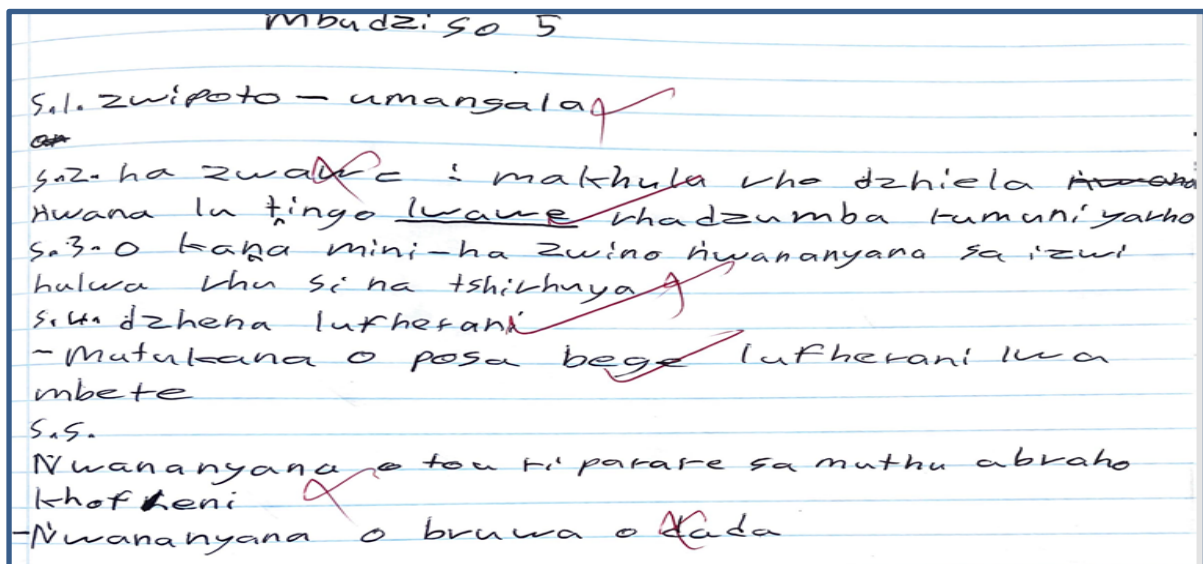 Mbudziso 5
5.1. zwipoto - umangala
5.2. ha zwa : makhulu vho dzhiela
Nwana lu ṱingo lwawe vhadzumba kumuni yavho
5.3. O kaṋa mini-ha zwino ṅwananyana sa izwi
hulwa vhu si na tshivhuya
5.4. dzhena lufherani
- Mutukana o posa bege lufherani lwa
mbete
5.5.
Ṅwananyana o tou ri parare sa muthu abvaho
khofheni
-Ṅwananyana o bvuwa o dada